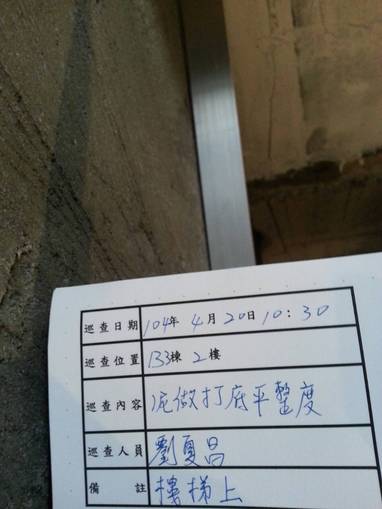 巡查日期 104年 4月 20日 10:30
巡查位置 B3棟 2樓
巡查內容 泥做打底平整度
巡查人員 劉夏昌
備註 樓梯上